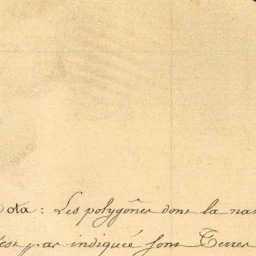 ota: Les polygônes dont la na
est pas indiquée sont Terres